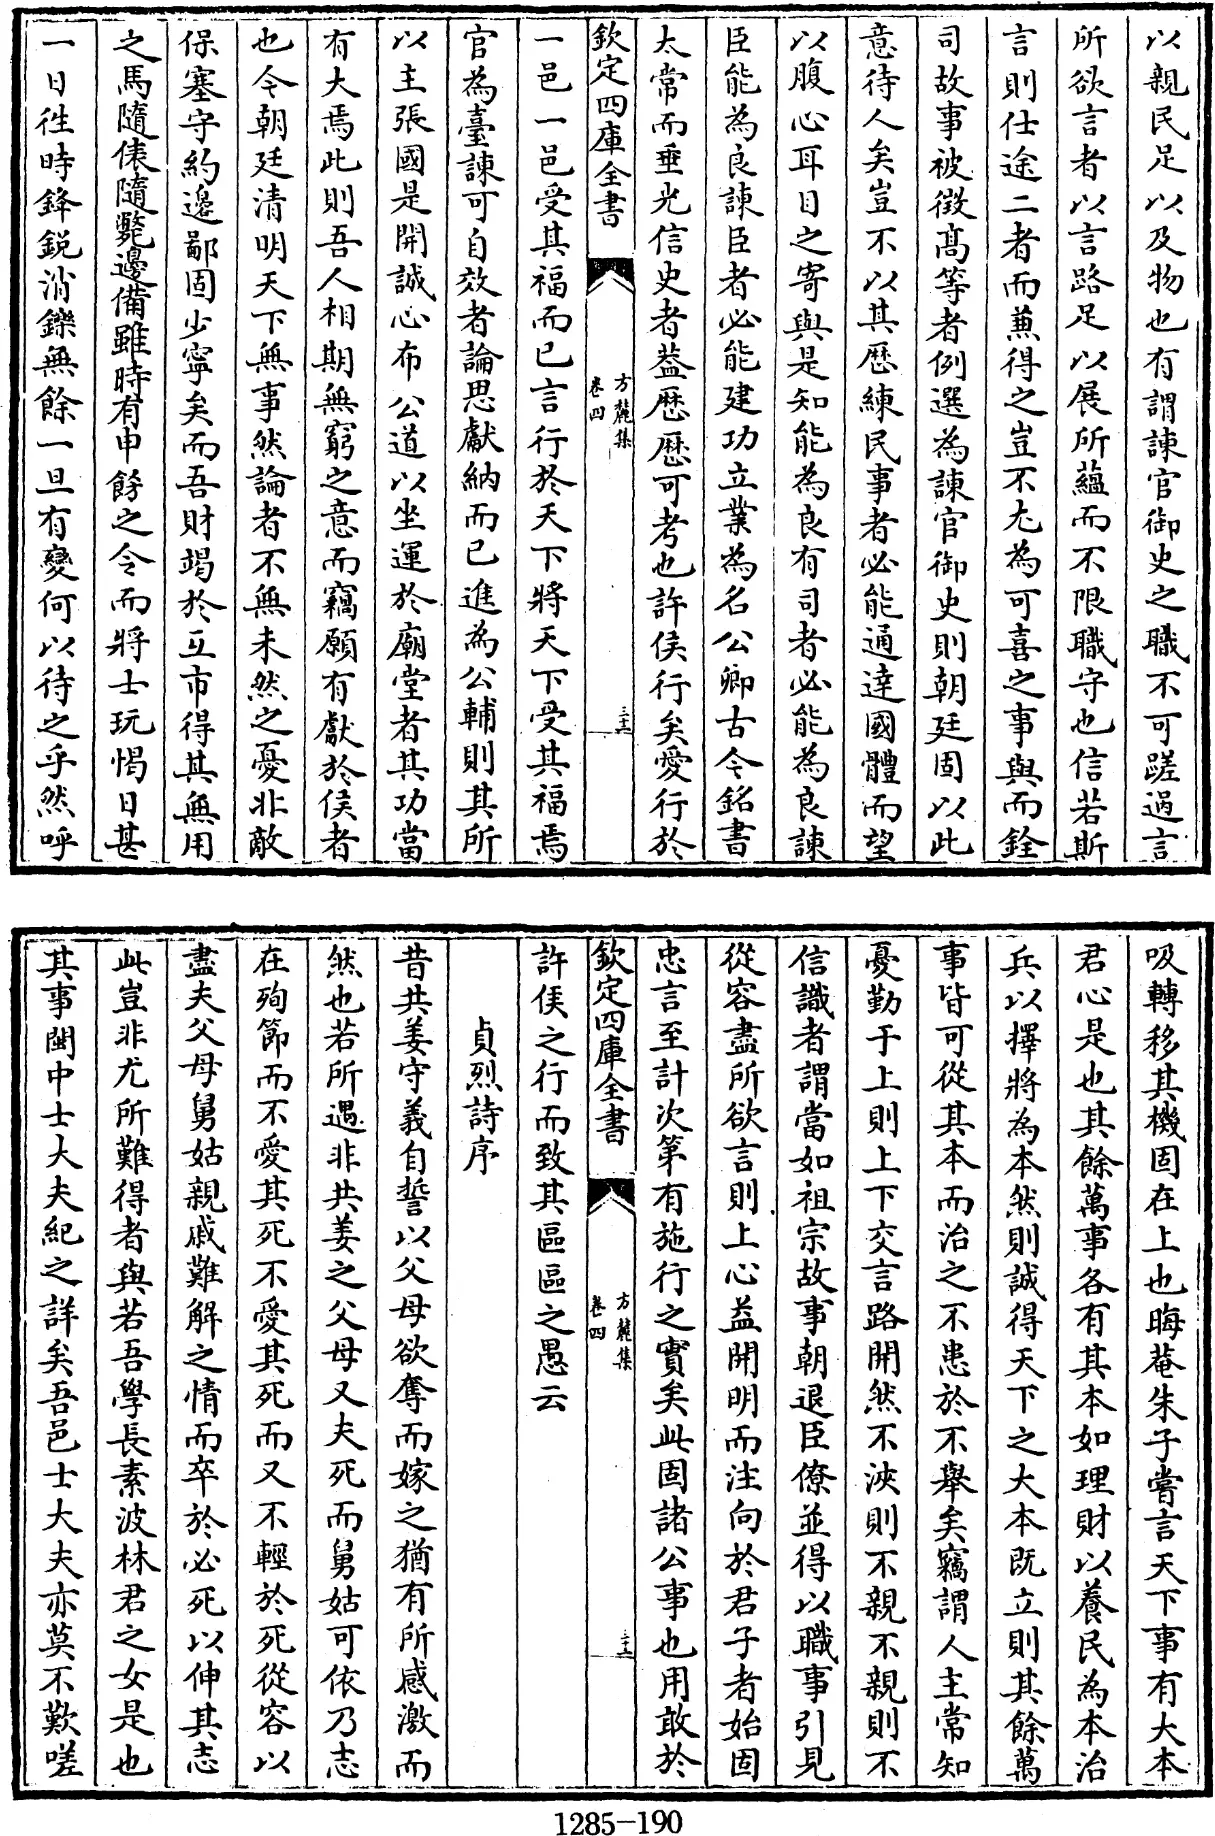 以親民足以及物也有謂諫官御史之職不可蹉過言
所欲言者以言路足以展所藴而不限職守也信若斯
言則仕途二者而兼得之豈不尤為可喜之事與而銓
司故事被徴髙等者例選為諫官御史則朝廷固以此
意待人矣豈不以其歴練民事者必能通達國體而望
以腹心耳目之寄與是知能為良有司者必能為良諫
臣能為良諫臣者必能建功立業為名公卿古今銘書
太常而垂光信史者葢歴歴可考也許侯行矣愛行於
欽定四庫全書
方麓集
卷四
三十六
一邑一邑受其福而已言行於天下將天下受其福焉
官為臺諫可自效者論思獻納而已進為公輔則其所
以主張國是開誠心布公道以坐運於廟堂者其功當
有大焉此則吾人相期無窮之意而竊願有獻於侯者
也今朝廷清明天下無事然論者不無未然之憂非敵
保塞守約邊鄙固少寧矣而吾財竭於互市得其無用
之馬隨俵隨斃邊備雖時有申飭之令而將士玩愒日甚
一日徃時鋒鋭消鑠無餘一旦有變何以待之乎然呼
吸轉移其機固在上也晦菴朱子嘗言天下事有大本
君心是也其餘萬事各有其本如理財以養民為本治
兵以擇將為本然則誠得天下之大本既立則其餘萬
事皆可從其本而治之不患於不舉矣竊謂人主常知
憂勤于上則上下交言路開然不浹則不親不親則不
信識者謂當如祖宗故事朝退臣僚並得以職事引見
從容盡所欲言則上心益開明而注向於君子者始固
忠言至計次第有施行之實矣此固諸公事也用敢於
欽定四庫全書
方麓集
卷四
許侯之行而致其區區之愚云
貞烈詩序
昔共姜守義自誓以父母欲奪而嫁之猶有所感激而
然也若所遇非共姜之父母又夫死而舅姑可依乃志
在殉節而不愛其死不愛其死而又不輕於死從容以
盡夫父母舅姑親戚難解之情而卒於必死以伸其志
此豈非尤所難得者與若吾學長素波林君之女是也
其事閩中士大夫紀之詳矣吾邑士大夫亦莫不歎嗟
1285-190